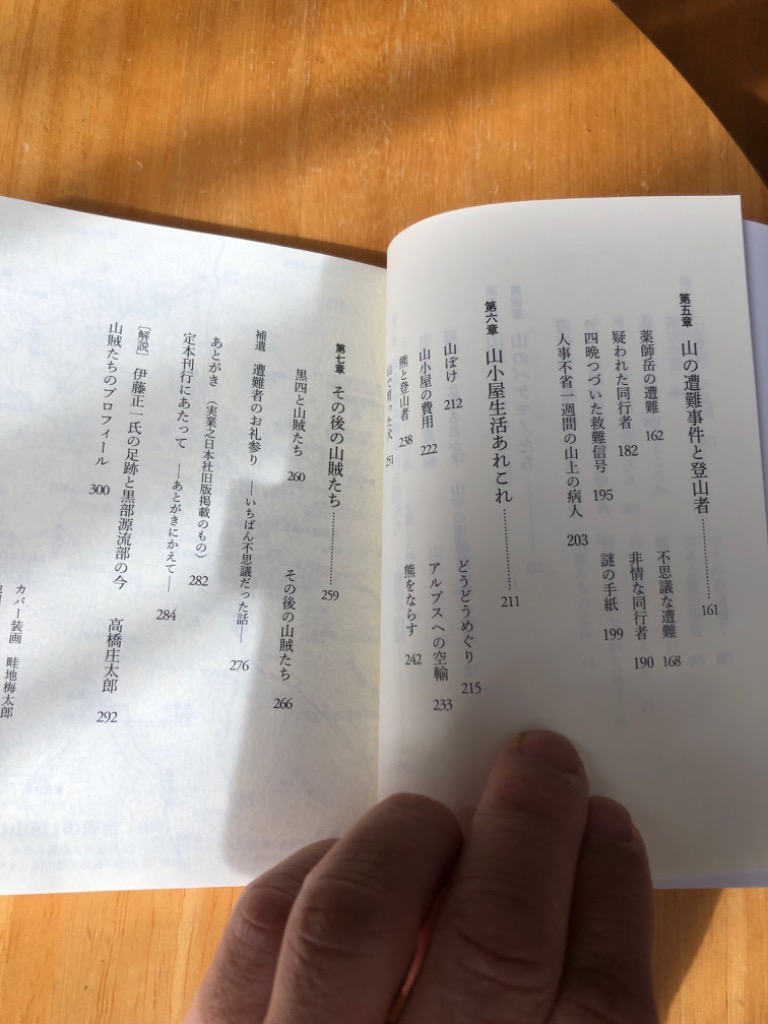 第五章 山の遭難事件と登山者……………161
薬師岳の遭難 162
不思議な遭難 168
疑われた同行者 182
非情な同行者 190
四晩つづいた救難信号 195
謎の手紙 199
人事不省一週間の山上の病人 203
第六章 山小屋生活あれこれ……………211
山ぼけ 212
どうどうめぐり 215
山小屋の費用 222
アルプスへの空輸 233
熊と登山者 238
熊をならす 242
251
第七章 その後の山賊たち……………259
黒四と山賊たち 260
その後の山賊たち 266
補遺 遭難者のお礼参り ――いちばん不思議だった話―― 276
あとがき(実業之日本社旧版掲載のもの) 282
定本刊行にあたって ――あとがきにかえて―― 284
[解説] 伊藤正一氏の足跡と黒部源流部の今 高橋庄太郎 292
山賊たちのプロフィール 300
カバー装画 畦地梅太郎